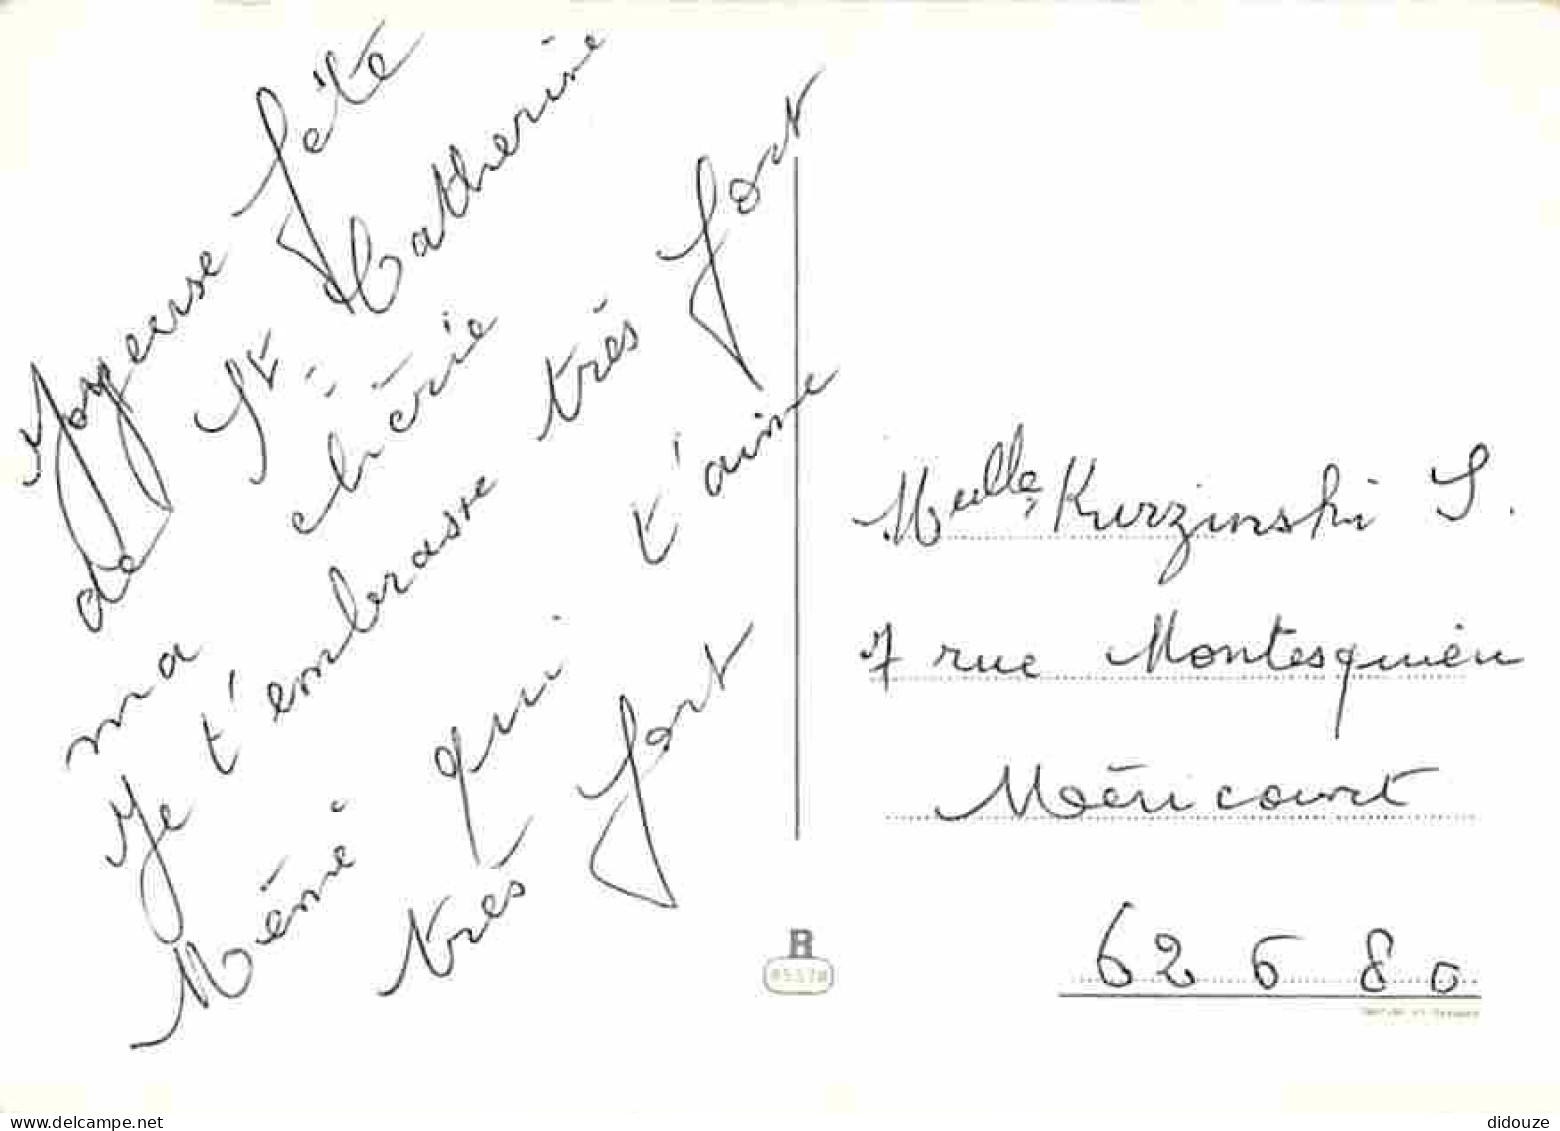 Joyeuse fête
de Ste Catherine
ma chérie
Je t'embrasse très fort
Mémé qui t'aime
très fort
Melle Kurzinski S.
7 rue Montesquieu
Méricourt
62680
R
didouze